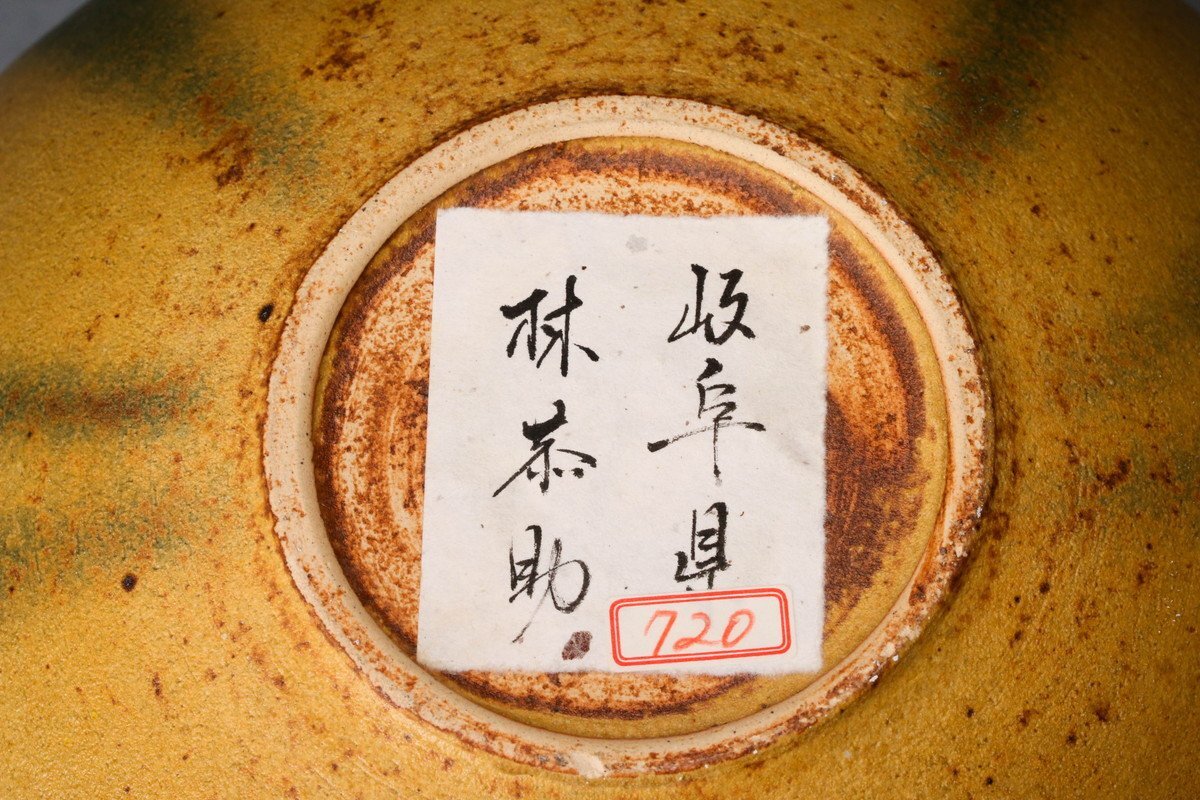 岐阜県
林恭助
720